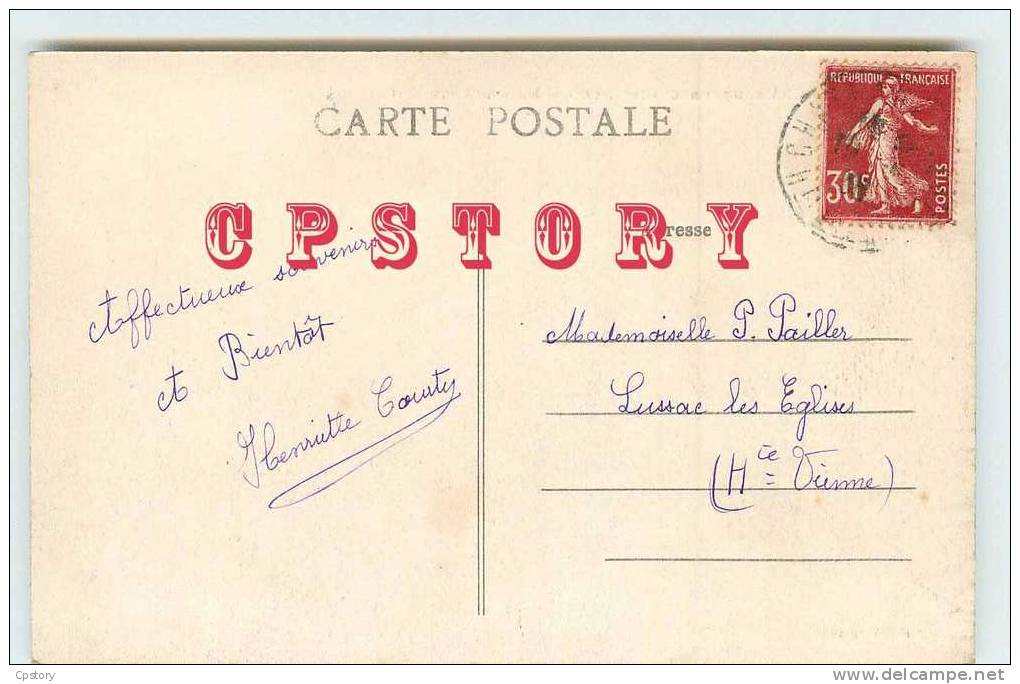 CARTE POSTALE
REPUBLIQUE FRANÇAISE
30c
POSTES
CPSTORY
Adresse
Affectueux souvenirs
et Bientôt
Henriette Courty
Mademoiselle P. Pailler
Lussac les Eglises
(Hte Vienne)
Cpstory
www.delcampe.net